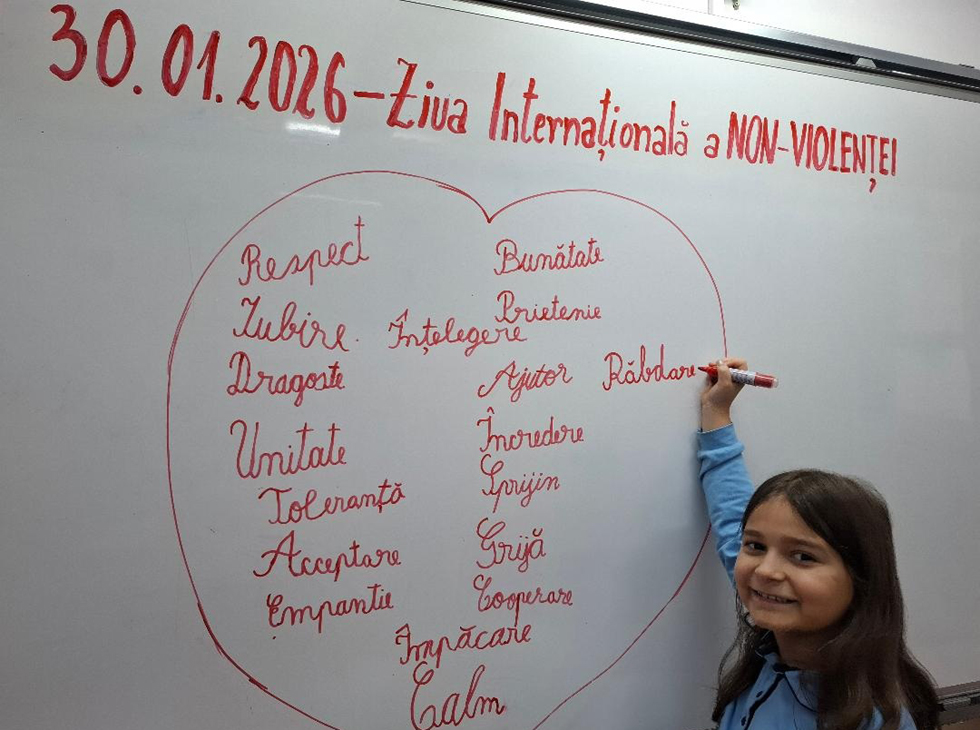 30.01.2026 – Ziua Internațională a NON-VIOLENȚEI
Respect
Bunătate
Iubire.
Prietenie
Înțelegere
Dragoste
Ajutor
Răbdare
Unitate
Încredere
Toleranță
Sprijin
Acceptare
Grijă
Empantie
Cooperare
Împăcare
Calm